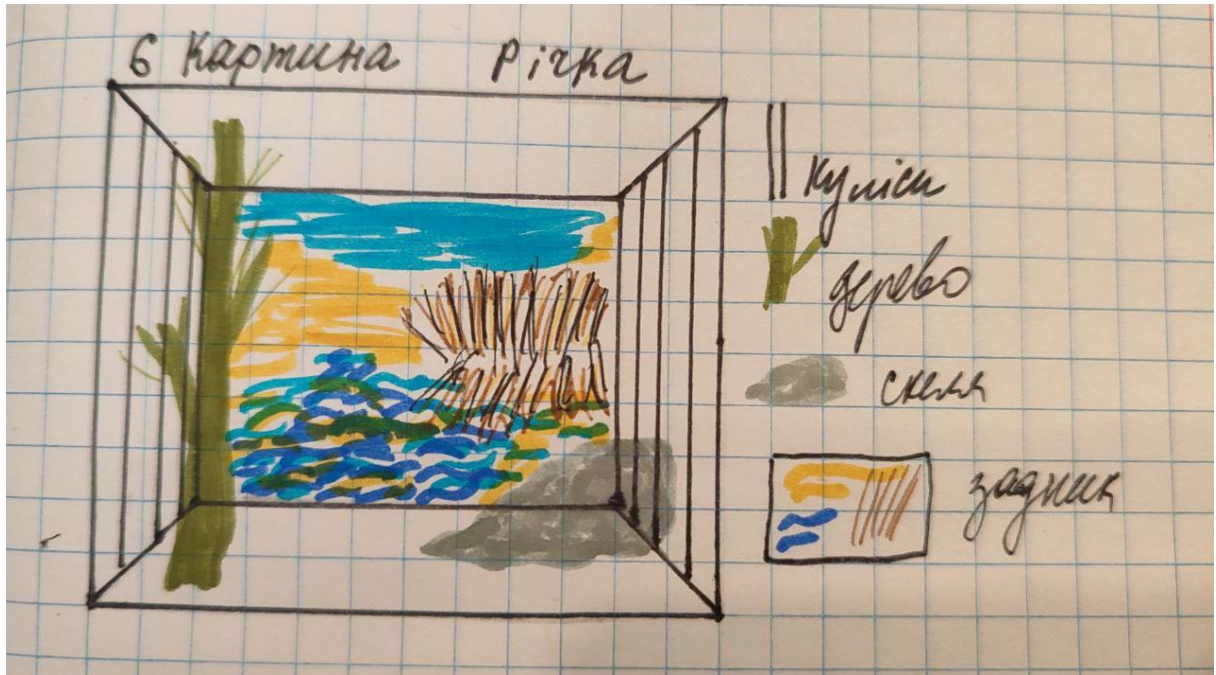 6 Картина Річка
куліси
дерево
скеля
задник